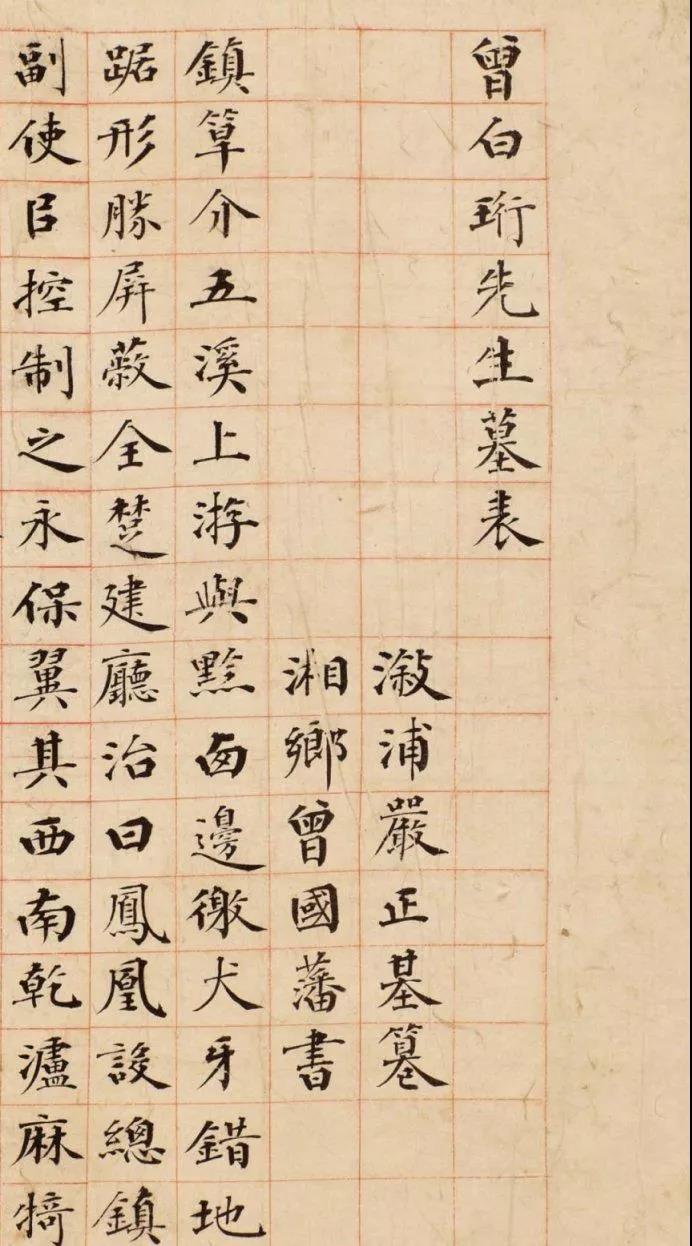 曾白珩先生墓表
漵浦嚴正基篹
湘鄉曾國藩書
鎮筸介五溪上游與黔邊徼犬牙錯地
踞形勝屏蔽全楚建廳治曰鳳凰設總鎮
副使臣控制之永保翼其西南乾瀘麻犄